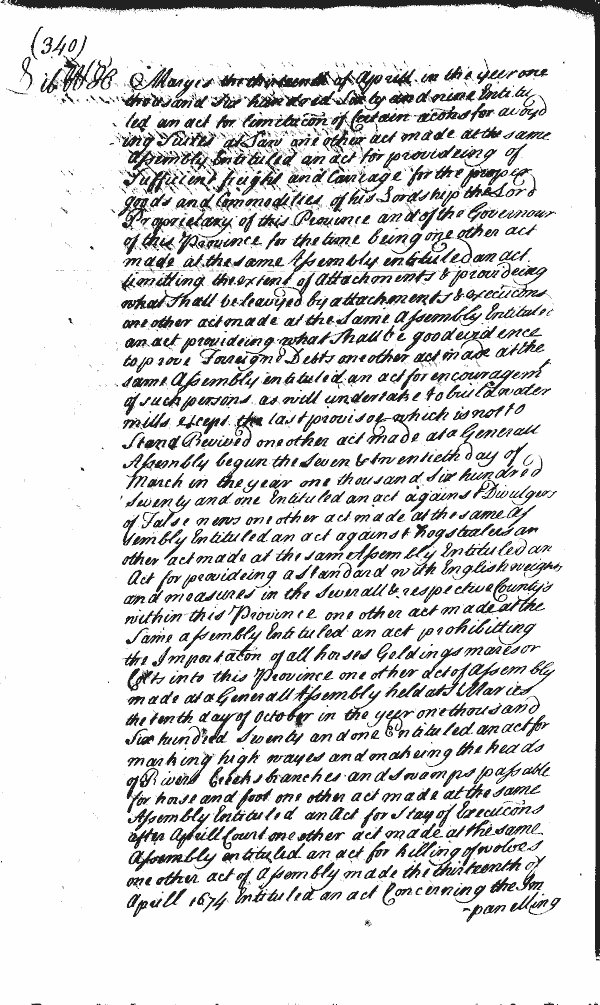 (340)
Lib WH
Maryes the thirteenth of Aprill in the yeer one
thousand six hundred Sixty and nine Entitu
led an act for limitacon of Certain acons for avoyd
ing Suites at Law one other act made at the same
Assembly Entituled an act for provideing of
Sufficient freight and Carriage for the proper
goods and Commodities of his Lordship the Lord
Proprietary of this Province and of the Governour
of this Province for the time being one other act
made at the same Assembly entituled an act
limitting the extent of Attachments & provideing
what shall be leavyed by attachments & execucons
one other act made at the Same Assembly Entituled
an act provideing what shall be good evidence
to prove Foreigne Debts one other act made at the
same Assembly entituled an act for encouragemt
of such persons as will undertake to build water
mills except the last proviso which is not to
Stand Revived one other act made at a Generall
Assembly begun the Seven & twentieth day of
March in the year one thousand six hundred
seventy and one Entituled an act against Divulgers
of False news one other act made at the same As
sembly Entituled an act against hogstealers an
other act made at the same Assembly Entituled an
Act for provideing a standard with English weights
and measures in the severall & respective County's
within this Province one other act made at the
Same assembly Entituled an act prohibitting
the Importacon of all horses Geldings mares or
Colts into this Province one other act of Assembly
made at a Generall Assembly held at St Maries
the tenth day of October in the year one thousand
Six hundred Seventy and one Entituled an act for
marking high wayes and makeing the heads
of Rivers Creeks branches and swamps passable
for horse and foot one other act made at the same
Assembly Entituled an Act for Stay of Execucons
after Aprill Court one other act made at the same
Assembly entituled an act for killing of wolves
one other act of Assembly made the thirteenth of
Aprill 1674 Entituled an act Concerning the Im
-panelling